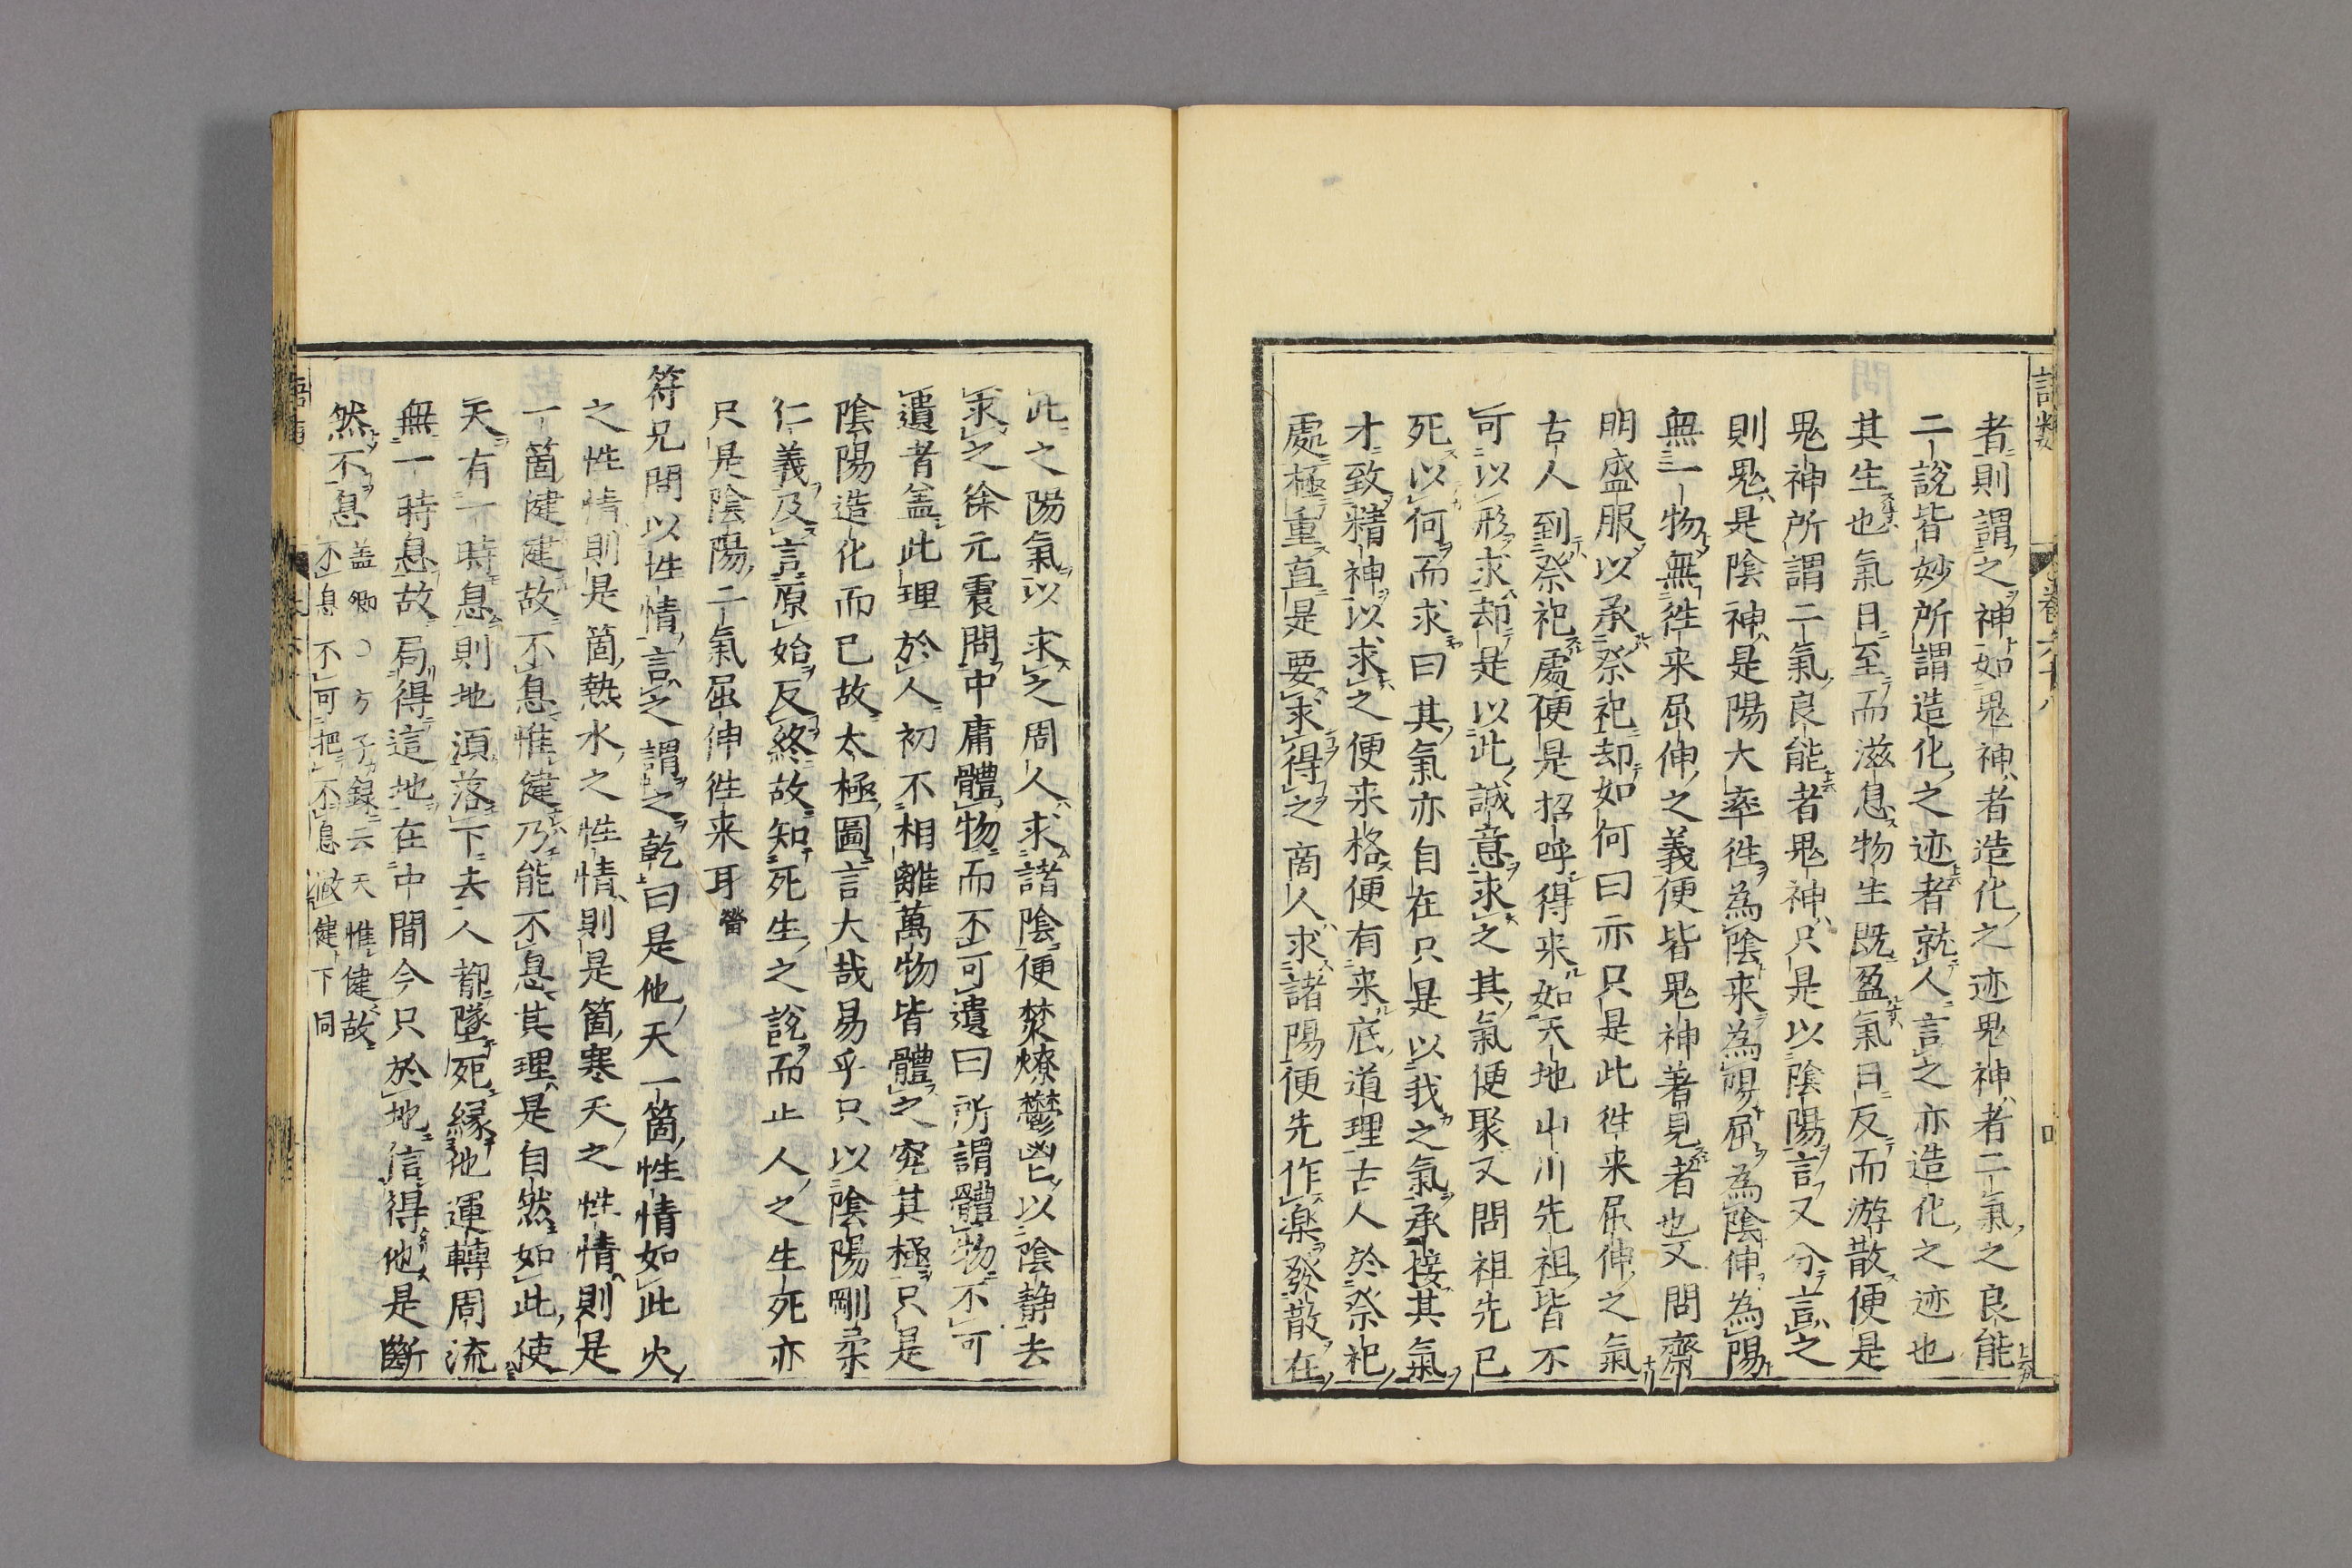 者則謂之神如鬼神者造化之迹鬼神者二氣之良能
二說皆妙所謂造化之迹者就人言之亦造化之迹也
其生也氣日至而滋息物生既盈氣日反而游散便是
鬼神所謂二氣良能者鬼神只是以陰陽言又分言之
則鬼是陰神是陽大率徃為陰来為陽屈為陰伸為陽
無一物無徃来屈伸之義便皆鬼神著見者也又問齋
明盛服以承祭祀却如何曰亦只是此徃来屈伸之氣
古人到祭祀處便是招呼得来如天地山川先祖皆不
可以形求却是以此誠意求之其氣便聚又問祖先已
死以何而求曰其氣亦自在只是以我之氣承接其氣
才致精神以求之便来格便有来底道理古人於祭祀
處極重直是要求得之商人求諸陽便先作楽發散在
此之陽氣以求之周人求諸陰便焚燎鬱鬯以陰静去
求之徐元震問中庸體物而不可遺曰所謂體物不可
遺者盖此理於人初不相離萬物皆體之究其極只是
陰陽造化而已故太極圖言大哉易乎只以陰陽剛柔
仁義及言原始反終故知死生之說而止人之生死亦
只是陰陽二氣屈伸徃来耳㽦
符兄問以性情言之謂之乾曰是他天一箇性情如此火
之性情則是箇熱水之性情則是箇寒天之性情則是
一箇健健故不息惟健乃能不息其理是自然如此使
天有一時息則地須落下去人都墜死縁他運轉周流
無一時息故局得這地在中間今只於地信得他是斷
然不息盖卿○方子録云天惟健故
不息不可把不息做健下同